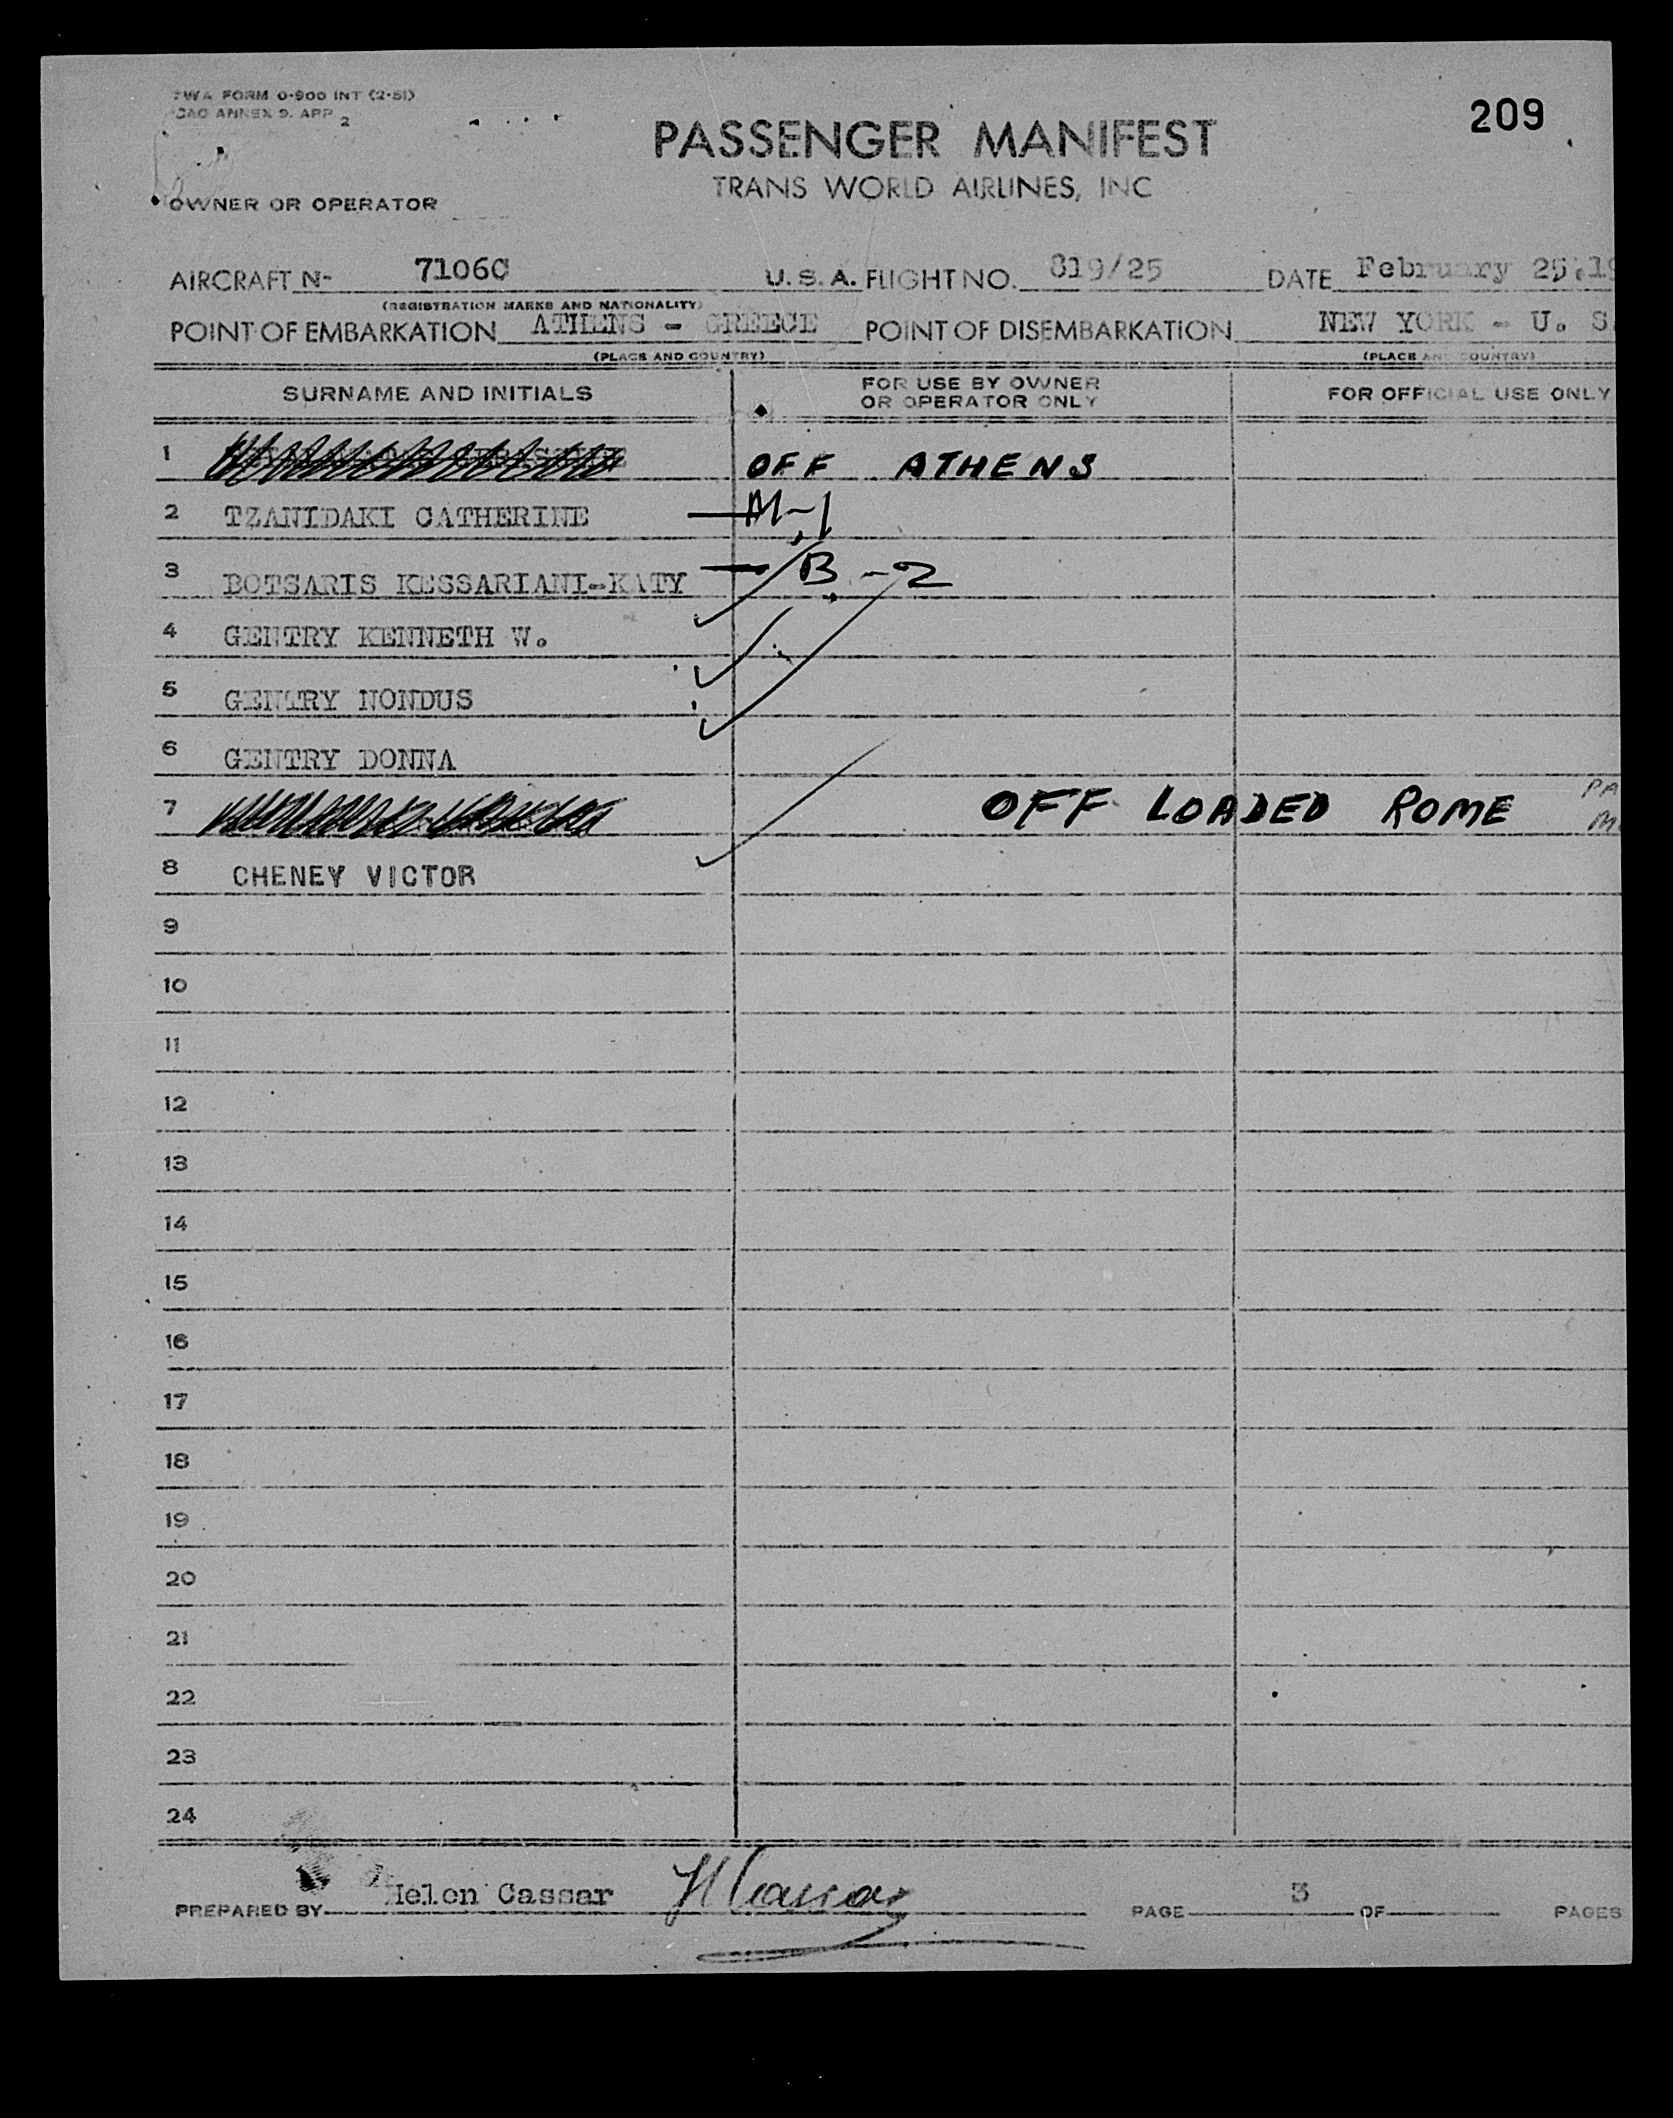 TWA FORM 0-900 INT (2-51)
ICAO ANNEX 9. APP 2
209
PASSENGER MANIFEST
TRANS WORLD AIRLINES, INC
OWNER OR OPERATOR
AIRCRAFT N- 7106C U.S.A. FLIGHT NO. 819/25 DATE February 25,19
(REGISTRATION MARKS AND NATIONALITY)
POINT OF EMBARKATION ATHENS - GREECE POINT OF DISEMBARKATION NEW YORK - U. S.
(PLACE AND COUNTRY) (PLACE AND COUNTRY)
SURNAME AND INITIALS FOR USE BY OWNER OR OPERATOR ONLY FOR OFFICIAL USE ONLY
1 OFF ATHENS
2 TZANIDAKI CATHERINE — M-1
3 BOTSARIS KESSARIANI-KATY — B-2
4 GENTRY KENNETH W.
5 GENTRY NONDUS
6 GENTRY DONNA
7 OFF LOADED ROME
8 CHENEY VICTOR
9
10
11
12
13
14
15
16
17
18
19
20
21
22
23
24
PREPARED BY Helen Cassar H Cassar PAGE 3 OF PAGES